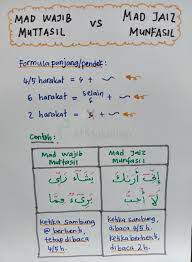 MAD WAJIB
MUTTASIL
VS
MAD JAIZ
MUNFASIL
Formula panjang/pendek:
4/5 harakat = ء + ~
6 harakat = selain ء + ~
2 harakat = ء +
Contoh:
Mad Wajib
Muttasil
Mad Jaiz
Munfasil
ketika sambung
@ berhenti,
tetap dibaca
4/5 h.
ketika sambung,
dibaca 4/5 h.
ketika berhenti,
dibaca 2 h.